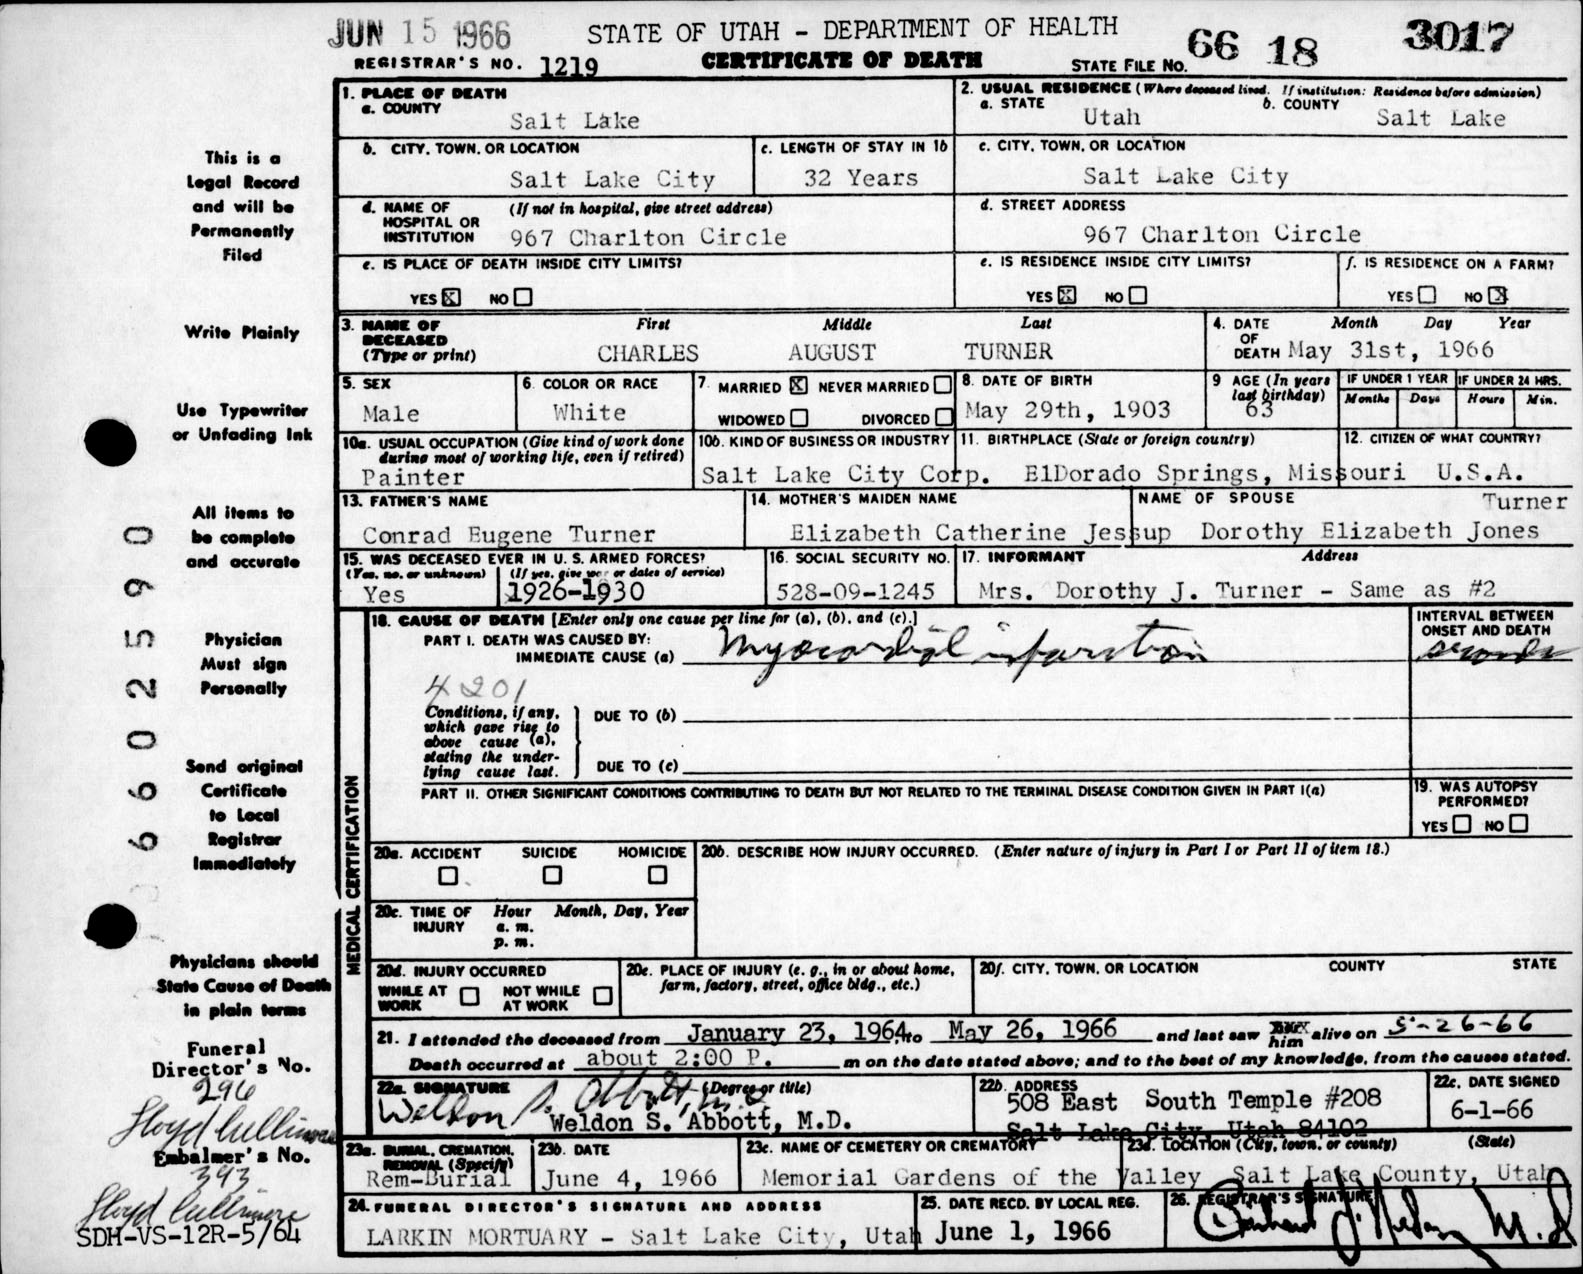 JUN 15 1966
STATE OF UTAH - DEPARTMENT OF HEALTH
66 18 3017
REGISTRAR'S NO. 1219
CERTIFICATE OF DEATH
STATE FILE NO.
1. PLACE OF DEATH
a. COUNTY
Salt Lake
2. USUAL RESIDENCE (Where deceased lived. If institution: Residence before admission)
a. STATE b. COUNTY
Utah Salt Lake
b. CITY, TOWN, OR LOCATION
Salt Lake City
c. LENGTH OF STAY IN 1b
32 Years
c. CITY, TOWN, OR LOCATION
Salt Lake City
d. NAME OF HOSPITAL OR INSTITUTION
(If not in hospital, give street address)
967 Charlton Circle
d. STREET ADDRESS
967 Charlton Circle
e. IS PLACE OF DEATH INSIDE CITY LIMITS?
YES X NO
e. IS RESIDENCE INSIDE CITY LIMITS?
YES X NO
f. IS RESIDENCE ON A FARM?
YES NO X
3. NAME OF DECEASED (Type or print)
First Middle Last
CHARLES AUGUST TURNER
4. DATE OF DEATH
Month Day Year
May 31st, 1966
5. SEX
Male
6. COLOR OR RACE
White
7. MARRIED X NEVER MARRIED
WIDOWED DIVORCED
8. DATE OF BIRTH
May 29th, 1903
9 AGE (In years last birthday)
63
IF UNDER 1 YEAR
Months Days
IF UNDER 24 HRS.
Hours Min.
10a. USUAL OCCUPATION (Give kind of work done during most of working life, even if retired)
Painter
10b. KIND OF BUSINESS OR INDUSTRY
Salt Lake City Corp.
11. BIRTHPLACE (State or foreign country)
ElDorado Springs, Missouri
12. CITIZEN OF WHAT COUNTRY?
U.S.A.
13. FATHER'S NAME
Conrad Eugene Turner
14. MOTHER'S MAIDEN NAME
Elizabeth Catherine Jessup
NAME OF SPOUSE
Turner
Dorothy Elizabeth Jones
15. WAS DECEASED EVER IN U. S. ARMED FORCES?
(Yes, no, or unknown) (If yes, give war or dates of service)
Yes 1926-1930
16. SOCIAL SECURITY NO.
528-09-1245
17. INFORMANT Address
Mrs. Dorothy J. Turner - Same as #2
MEDICAL CERTIFICATION
18. CAUSE OF DEATH [Enter only one cause per line for (a), (b), and (c).]
PART I. DEATH WAS CAUSED BY:
IMMEDIATE CAUSE (a) Myocardial infarction
INTERVAL BETWEEN ONSET AND DEATH
seconds
4201
Conditions, if any, which gave rise to above cause (a), stating the underlying cause last.
DUE TO (b)
DUE TO (c)
PART II. OTHER SIGNIFICANT CONDITIONS CONTRIBUTING TO DEATH BUT NOT RELATED TO THE TERMINAL DISEASE CONDITION GIVEN IN PART I(a)
19. WAS AUTOPSY PERFORMED?
YES NO
20a. ACCIDENT SUICIDE HOMICIDE
20b. DESCRIBE HOW INJURY OCCURRED. (Enter nature of injury in Part I or Part II of item 18.)
20c. TIME OF INJURY
Hour Month, Day, Year
a. m.
p. m.
20d. INJURY OCCURRED
WHILE AT WORK NOT WHILE AT WORK
20e. PLACE OF INJURY (e. g., in or about home, farm, factory, street, office bldg., etc.)
20f. CITY, TOWN, OR LOCATION COUNTY STATE
21. I attended the deceased from January 23, 1964, to May 26, 1966 and last saw him alive on 5-26-66
Death occurred at about 2:00 P. m on the date stated above; and to the best of my knowledge, from the causes stated.
22a. SIGNATURE (Degree or title)
Weldon S. Abbott, M.D.
Weldon S. Abbott, M.D.
22b. ADDRESS
508 East South Temple #208
Salt Lake City, Utah 84102
22c. DATE SIGNED
6-1-66
23a. BURIAL, CREMATION, REMOVAL (Specify)
Rem-Burial
23b. DATE
June 4, 1966
23c. NAME OF CEMETERY OR CREMATORY
Memorial Gardens of the Valley
23d. LOCATION (City, town, or county) (State)
Salt Lake County, Utah
24. FUNERAL DIRECTOR'S SIGNATURE AND ADDRESS
LARKIN MORTUARY - Salt Lake City, Utah
25. DATE RECD. BY LOCAL REG.
June 1, 1966
26. REGISTRAR'S SIGNATURE
M.D
This is a
Legal Record
and will be
Permanently
Filed
Write Plainly
Use Typewriter
or Unfading Ink
All items to
be complete
and accurate
Physician
Must sign
Personally
Send original
Certificate
to Local
Registrar
Immediately
Physicians should
State Cause of Death
in plain terms
660025590
Funeral
Director's No.
296
Floyd Cullimore
Embalmer's No.
393
Floyd Cullimore
SDH-VS-12R-5/64